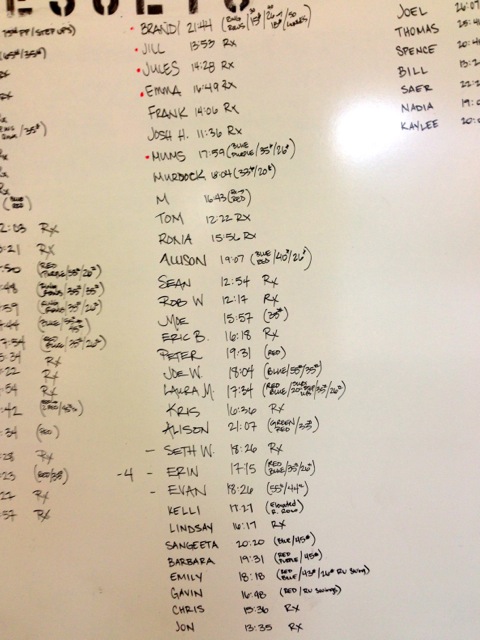 RESULTS
75# PP/STEP UPS)
(65#/35#)
Rx
Rx
/35#)
Rx
Rx
Rx
(BLUE RED)
2:03 Rx
0:21 Rx
:50 (RED PURPLE/35#/26#)
:48 /35#/26#)
:59 /35/26#)
:44 (BLUE/
7:54 (BLUE/35/26#)
5:34 Rx
:22 Rx
:54 Rx
:42
:34 (RED)
:28 Rx
:23 (RED/35#)
:22 Rx
:57 Rx
BRANDI 21:44
JILL 13:53 Rx
JULES 14:28 Rx
EMMA 16:49 Rx
FRANK 14:06 Rx
JOSH H. 11:36 Rx
MUMS 17:59 (BLUE PURPLE/35#/26#)
MURDOCK 18:04 (35#/20#)
M 16:43 (BLUE RED)
TOM 12:22 Rx
RONIA 15:56 Rx
ALLISON 19:07 (BLUE RED/40#/26#)
SEAN 12:54 Rx
ROB W 12:17 Rx
MOE 15:57 (35#)
ERIC B. 16:18 Rx
PETER 19:31 (RED)
JOE W. 18:04 (BLUE/55#/35#)
LAURA M. 17:34 (RED BLUE/
KRIS 16:36 Rx
ALISON 21:07 (GREEN RED/35#)
- SETH W. 18:26 Rx
-4 - ERIN 17:15 (RED BLUE/35#/26#)
- EVAN 18:26 (55#/44#)
KELLI 17:27 (Elevated R. Rows)
LINDSAY 16:17 Rx
SANGEETA 20:20 (BLUE/45#)
BARBARA 19:31 (RED PURPLE/45#)
EMILY 18:18 (RED BLUE/43#/26# RU Swing)
GAVIN 16:48 (RED/RU Swings)
CHRIS 15:36 Rx
JON 13:35 Rx
JOEL 26:07
THOMAS 25:4
SPENCE 20:4
BILL 13:2
SAER 22:2
NADIA 19:0
KAYLEE 20: